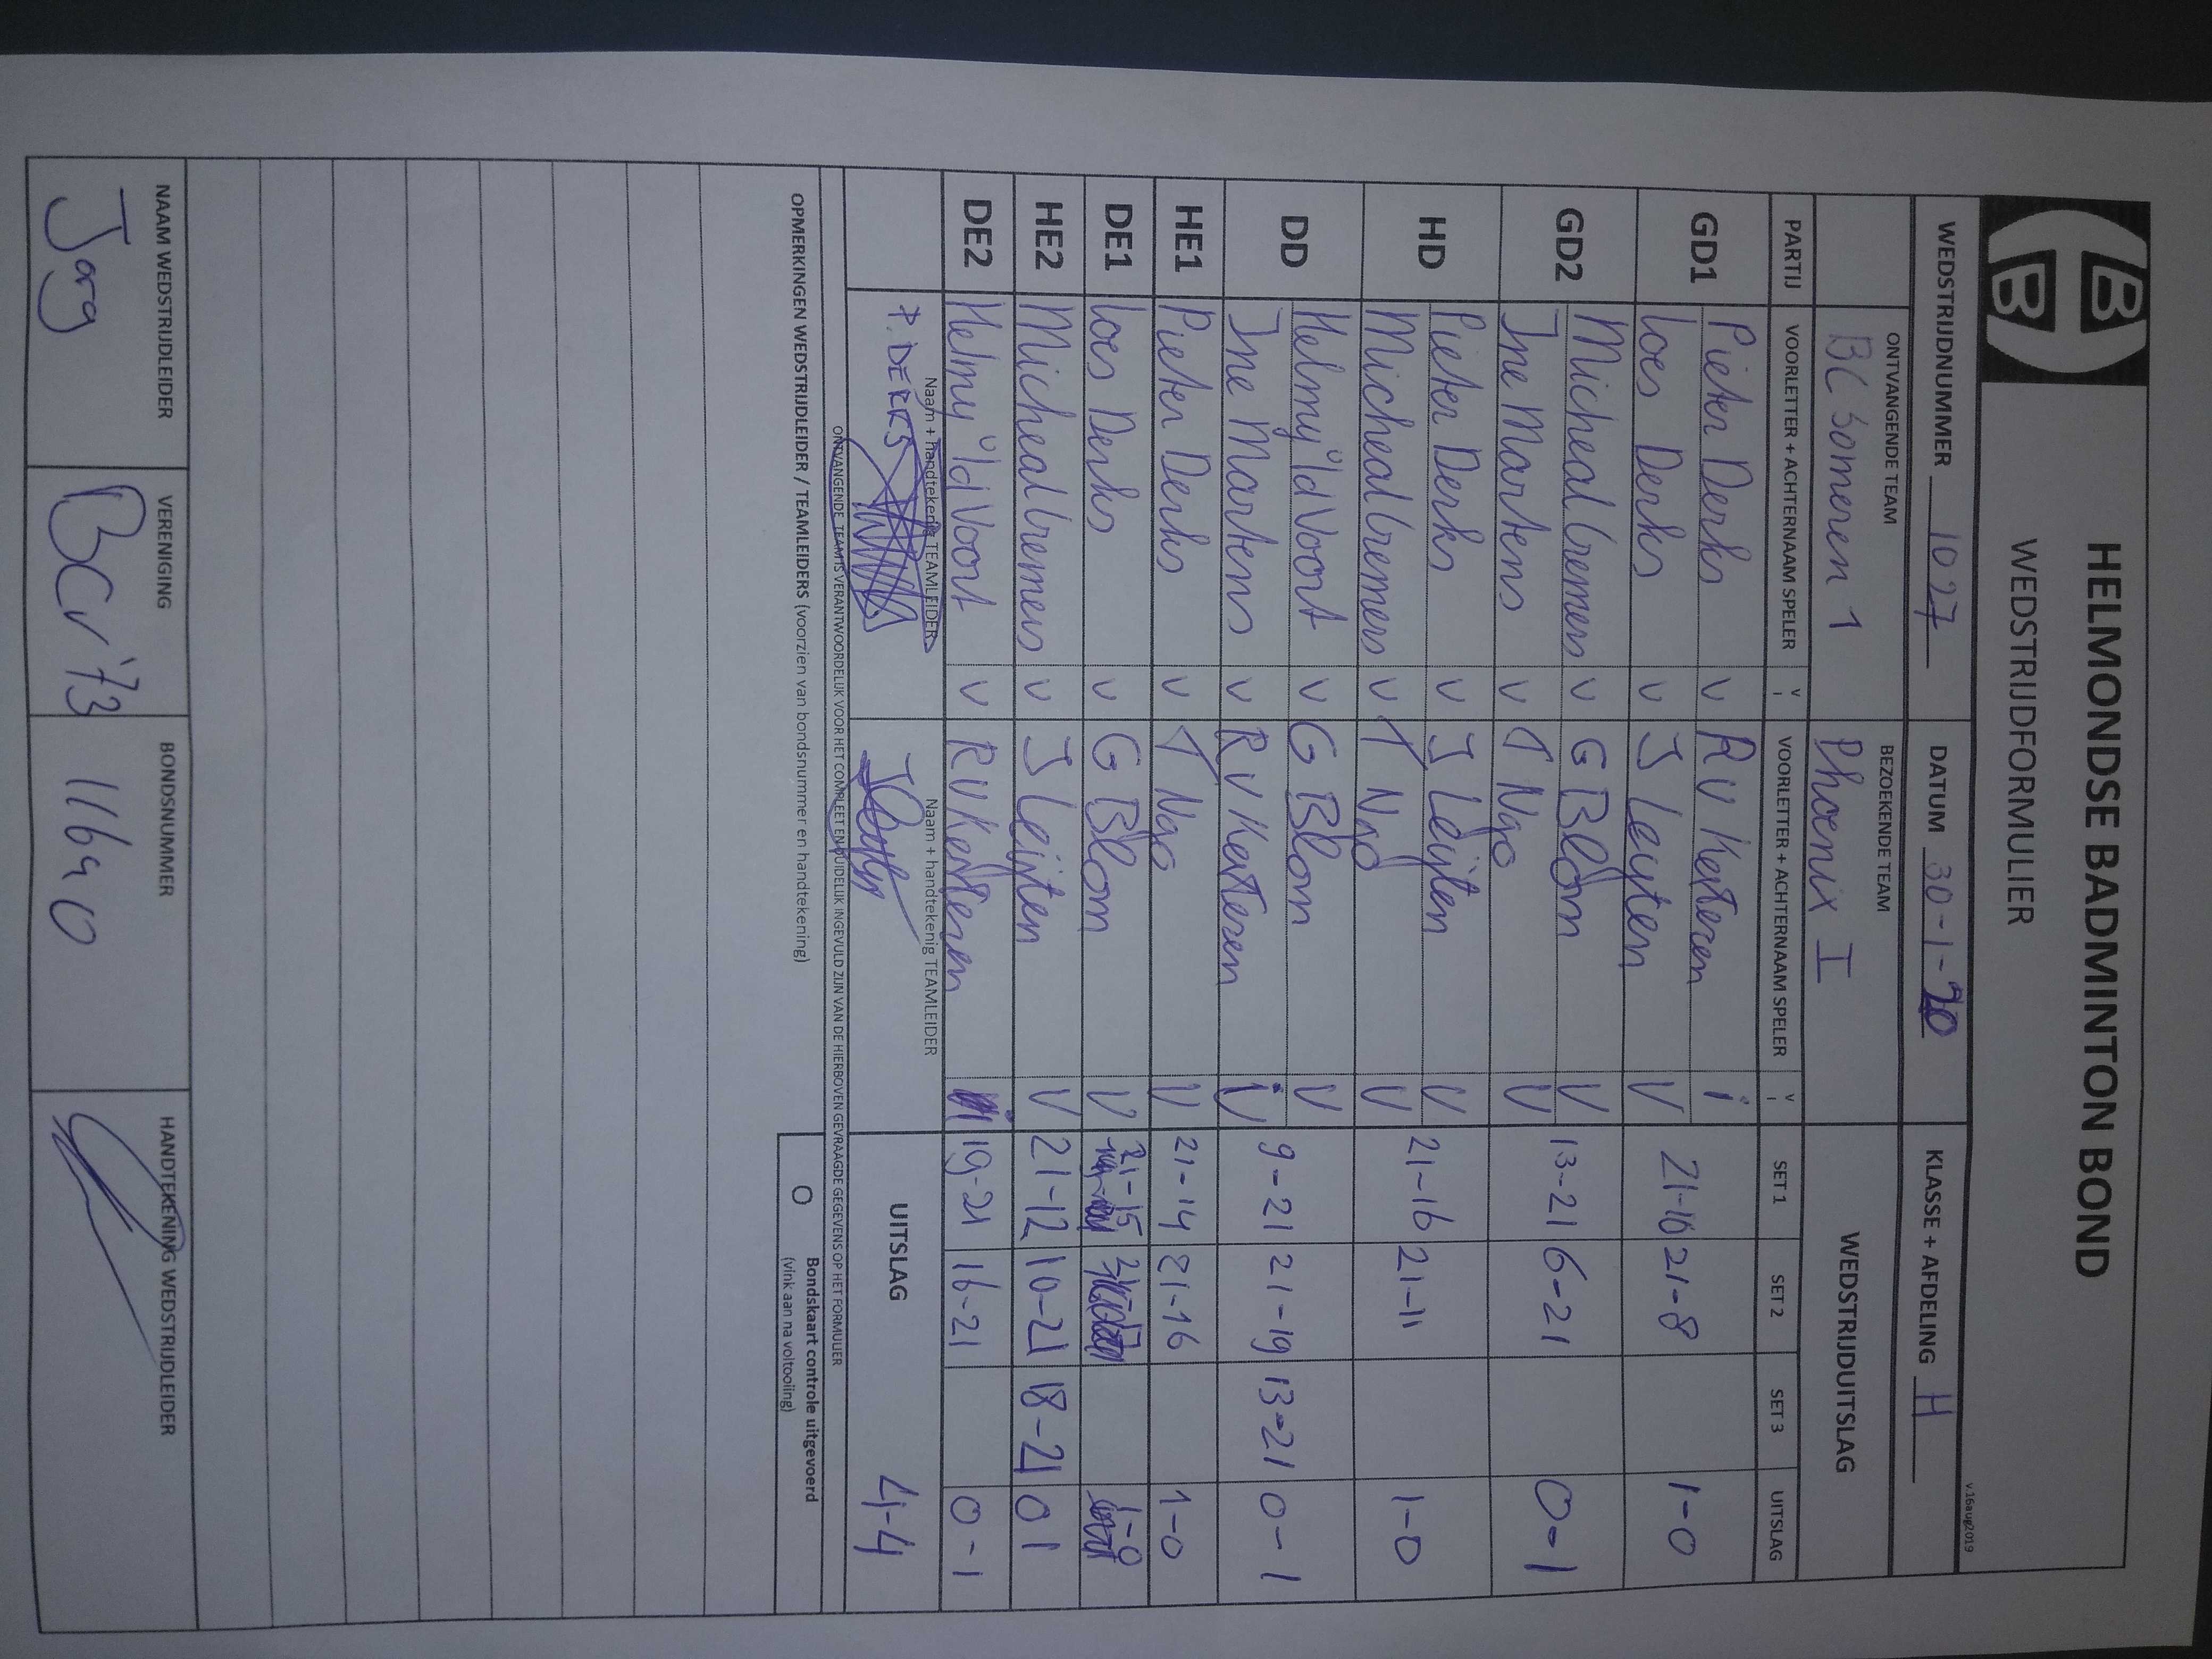 HELMONDSE BADMINTON BOND
WEDSTRIJDFORMULIER
v.16aug2019
WEDSTRIJDNUMMER 1027 DATUM 30-1-20 KLASSE + AFDELING H
ONTVANGENDE TEAM BEZOEKENDE TEAM WEDSTRIJDUITSLAG
BC Someren 1 Phoenix I
PARTIJ VOORLETTER + ACHTERNAAM SPELER V VOORLETTER + ACHTERNAAM SPELER V SET 1 SET 2 SET 3 UITSLAG
GD1 Pieter Derks v R v Kesteren i 21-10 21-8 1-0
Loes Derks v J Leyten V
GD2 Micheal Cremers v G Blom V 13-21 6-21 0-1
Ine Martens v T Ngo V
HD Pieter Derks v J Leijten V 21-16 21-11 1-0
Micheal Cremers v T Ngo V
DD Helmy vd Voort v G Blom V 9-21 21-19 13-21 0-1
Ine Martens v R v Kesteren
HE1 Pieter Derks v T Ngo V 21-14 21-16 1-0
DE1 Loes Derks v G Blom V 21-15 1-0
HE2 Micheal Cremers v J Leijten V 21-12 10-21 18-21 0 1
DE2 Helmy vd Voort v R v Kesteren 19-21 16-21 0-1
Naam + handtekenig TEAMLEIDER Naam + handtekenig TEAMLEIDER
P. DERKS UITSLAG 4-4
ONTVANGENDE TEAM IS VERANTWOORDELIJK VOOR HET COMPLEET EN DUIDELIJK INGEVULD ZIJN VAN DE HIERBOVEN GEVRAAGDE GEGEVENS OP HET FORMULIER
OPMERKINGEN WEDSTRIJDLEIDER / TEAMLEIDERS (voorzien van bondsnummer en handtekening)
O Bondskaart controle uitgevoerd
(vink aan na voltooiing)
NAAM WEDSTRIJDLEIDER VERENIGING BONDSNUMMER HANDTEKENING WEDSTRIJDLEIDER
Jorg BCV '73 11640